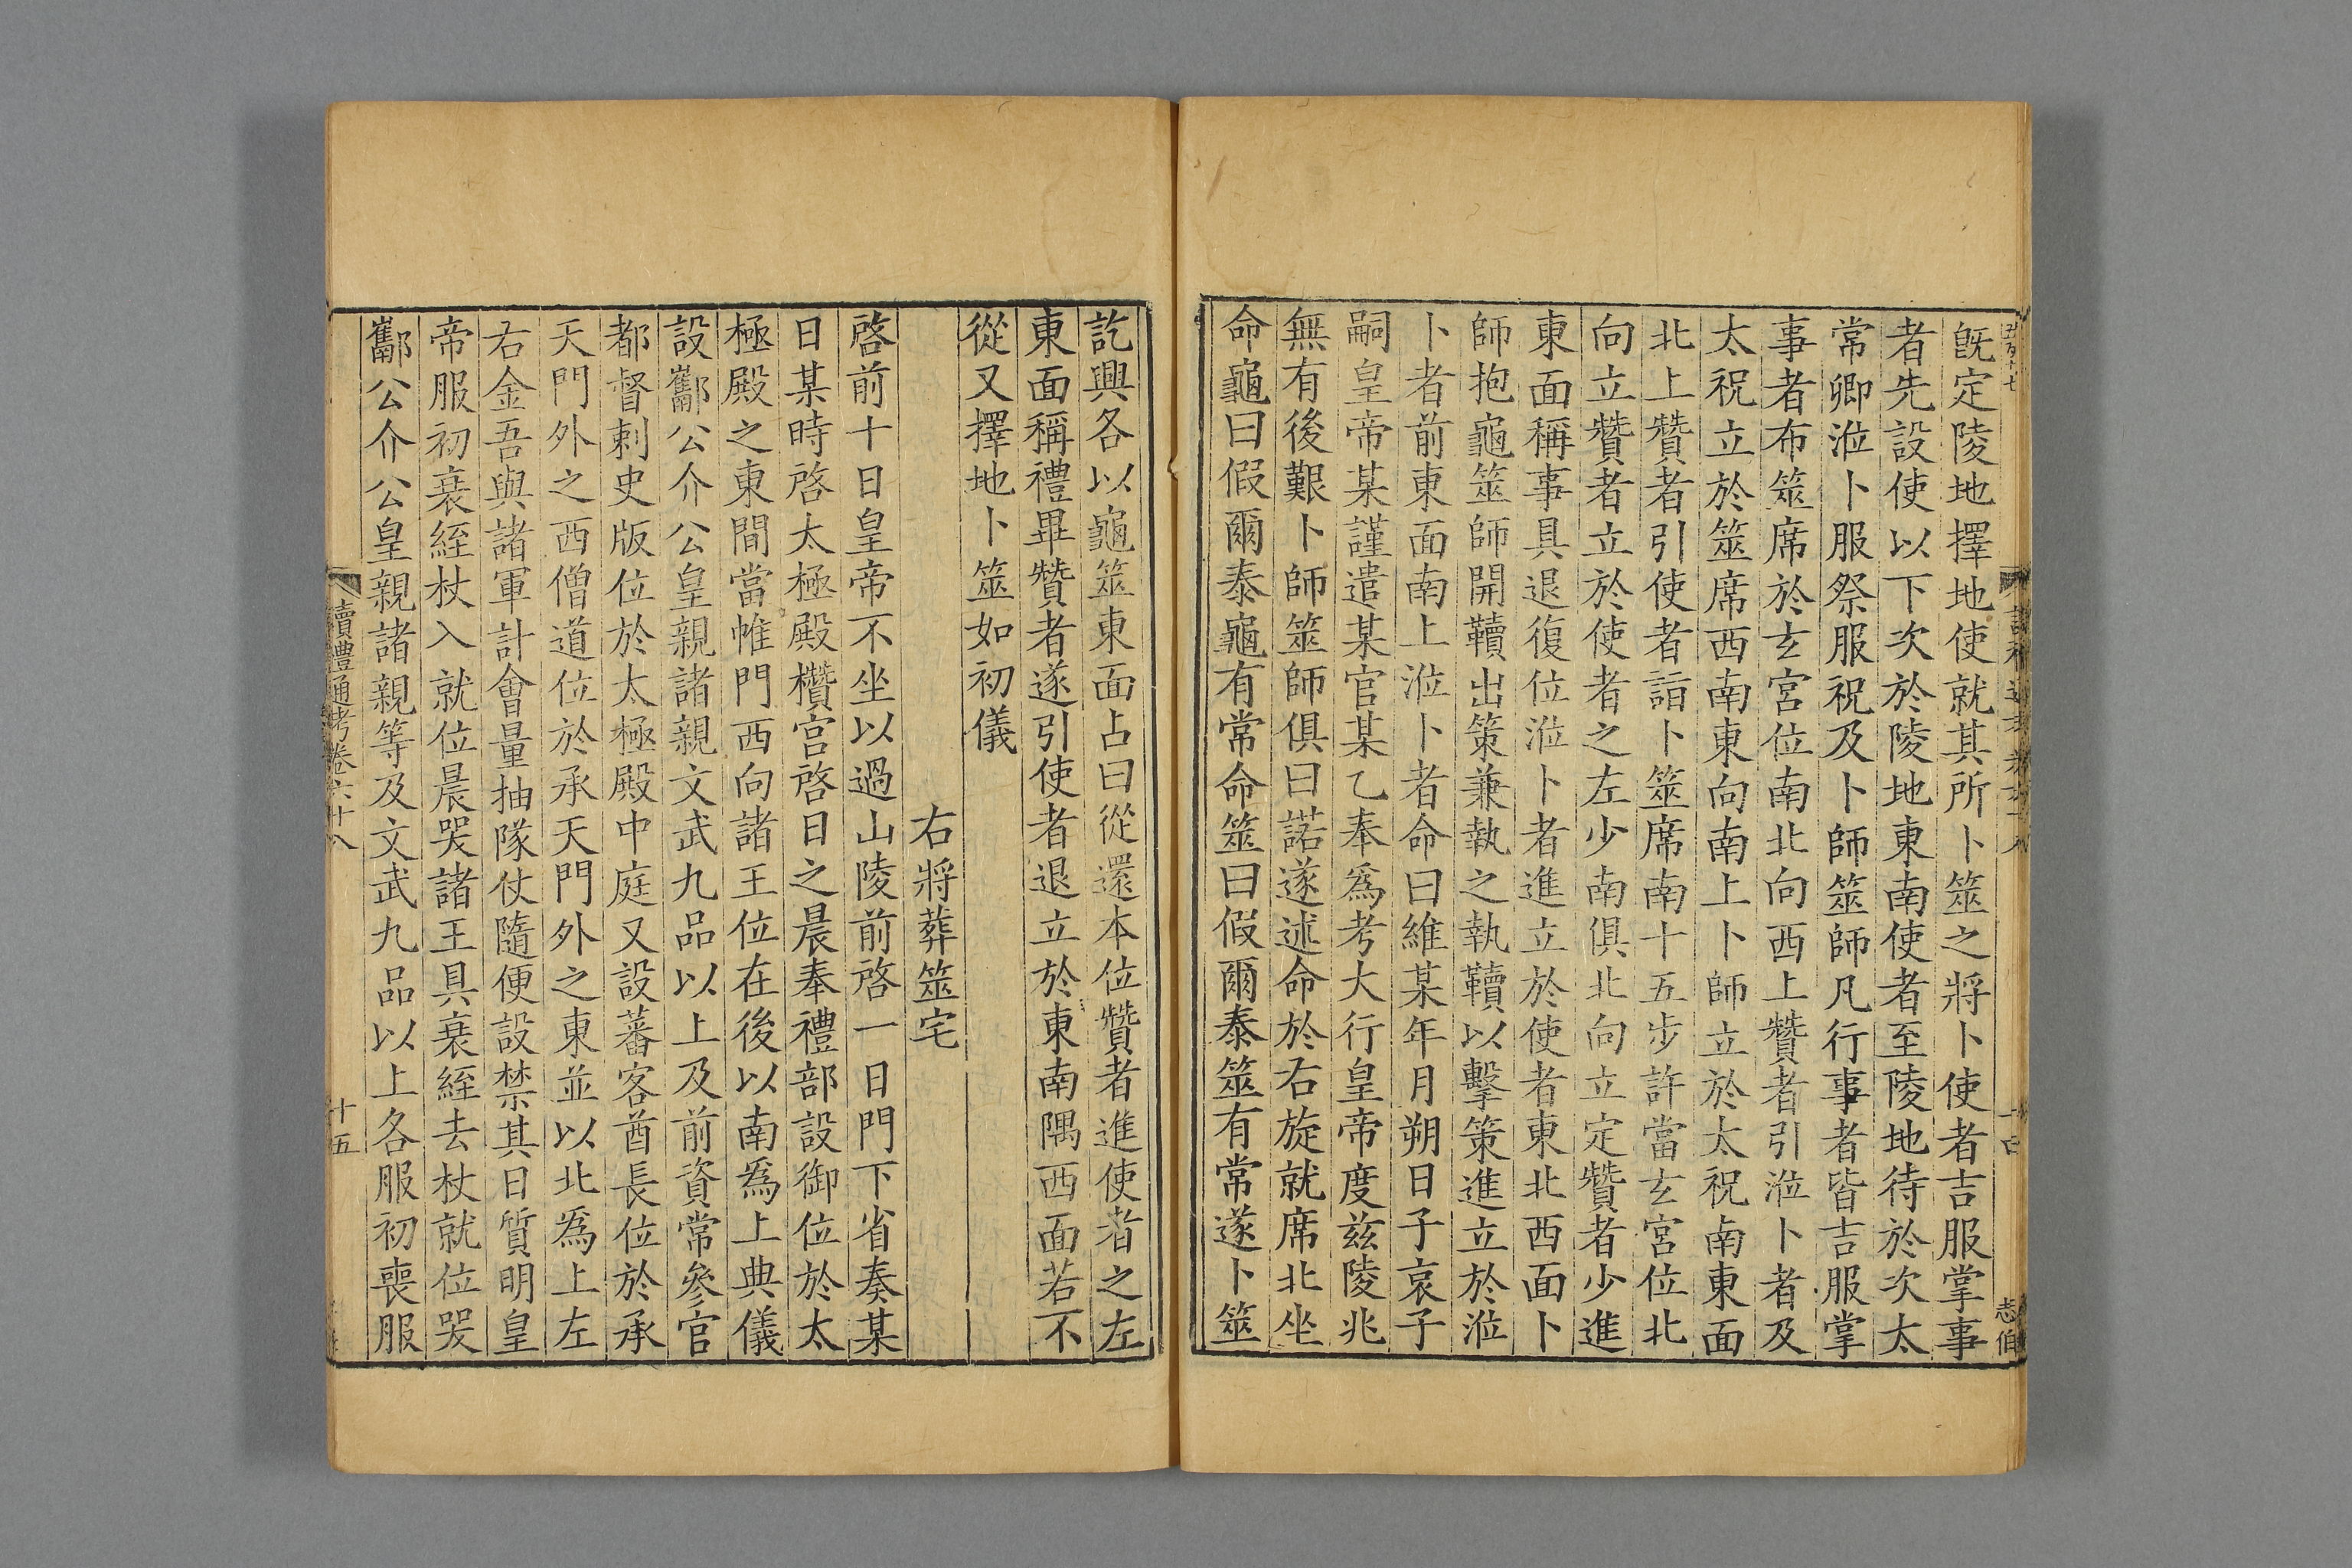 旣定陵地擇地使就其所卜筮之將卜使者吉服掌事
者先設使以下次於陵地東南使者至陵地待於次太
常卿涖卜服祭服祝及卜師筮師凡行事者皆吉服掌
事者布筮席於玄宮位南北向西上贊者引涖卜者及
太祝立於筮席西南東向南上卜師立於太祝南東面
北上贊者引使者詣卜筮席南十五步許當玄宮位北
向立贊者立於使者之左少南俱北向立定贊者少進
東面稱事具退復位涖卜者進立於使者東北西面卜
師抱龜筮師開韇出策兼執之執韇以擊策進立於涖
卜者前東面南上涖卜者命曰維某年月朔日子哀子
嗣皇帝某謹遣某官某乙奉爲考大行皇帝度茲陵兆
無有後艱卜師筮師俱曰諾遂述命於右旋就席北坐
命龜曰假爾泰龜有常命筮曰假爾泰筮有常遂卜筮
志伯
訖興各以龜筮東面占曰從還本位贊者進使者之左
東面稱禮畢贊者遂引使者退立於東南隅西面若不
從又擇地卜筮如初儀
右將葬筮宅
啓前十日皇帝不坐以過山陵前啓一日門下省奏某
日某時啓太極殿欑宮啓日之晨奉禮部設御位於太
極殿之東間當帷門西向諸王位在後以南爲上典儀
設酅公介公皇親諸親文武九品以上及前資常參官
都督刺史版位於太極殿中庭又設蕃客酋長位於承
天門外之西僧道位於承天門外之東並以北爲上左
右金吾與諸軍計會量抽隊仗隨便設禁其日質明皇
帝服初衰絰杖入就位晨哭諸王具衰絰去杖就位哭
酅公介公皇親諸親等及文武九品以上各服初喪服
讀禮通考卷六十八
十五